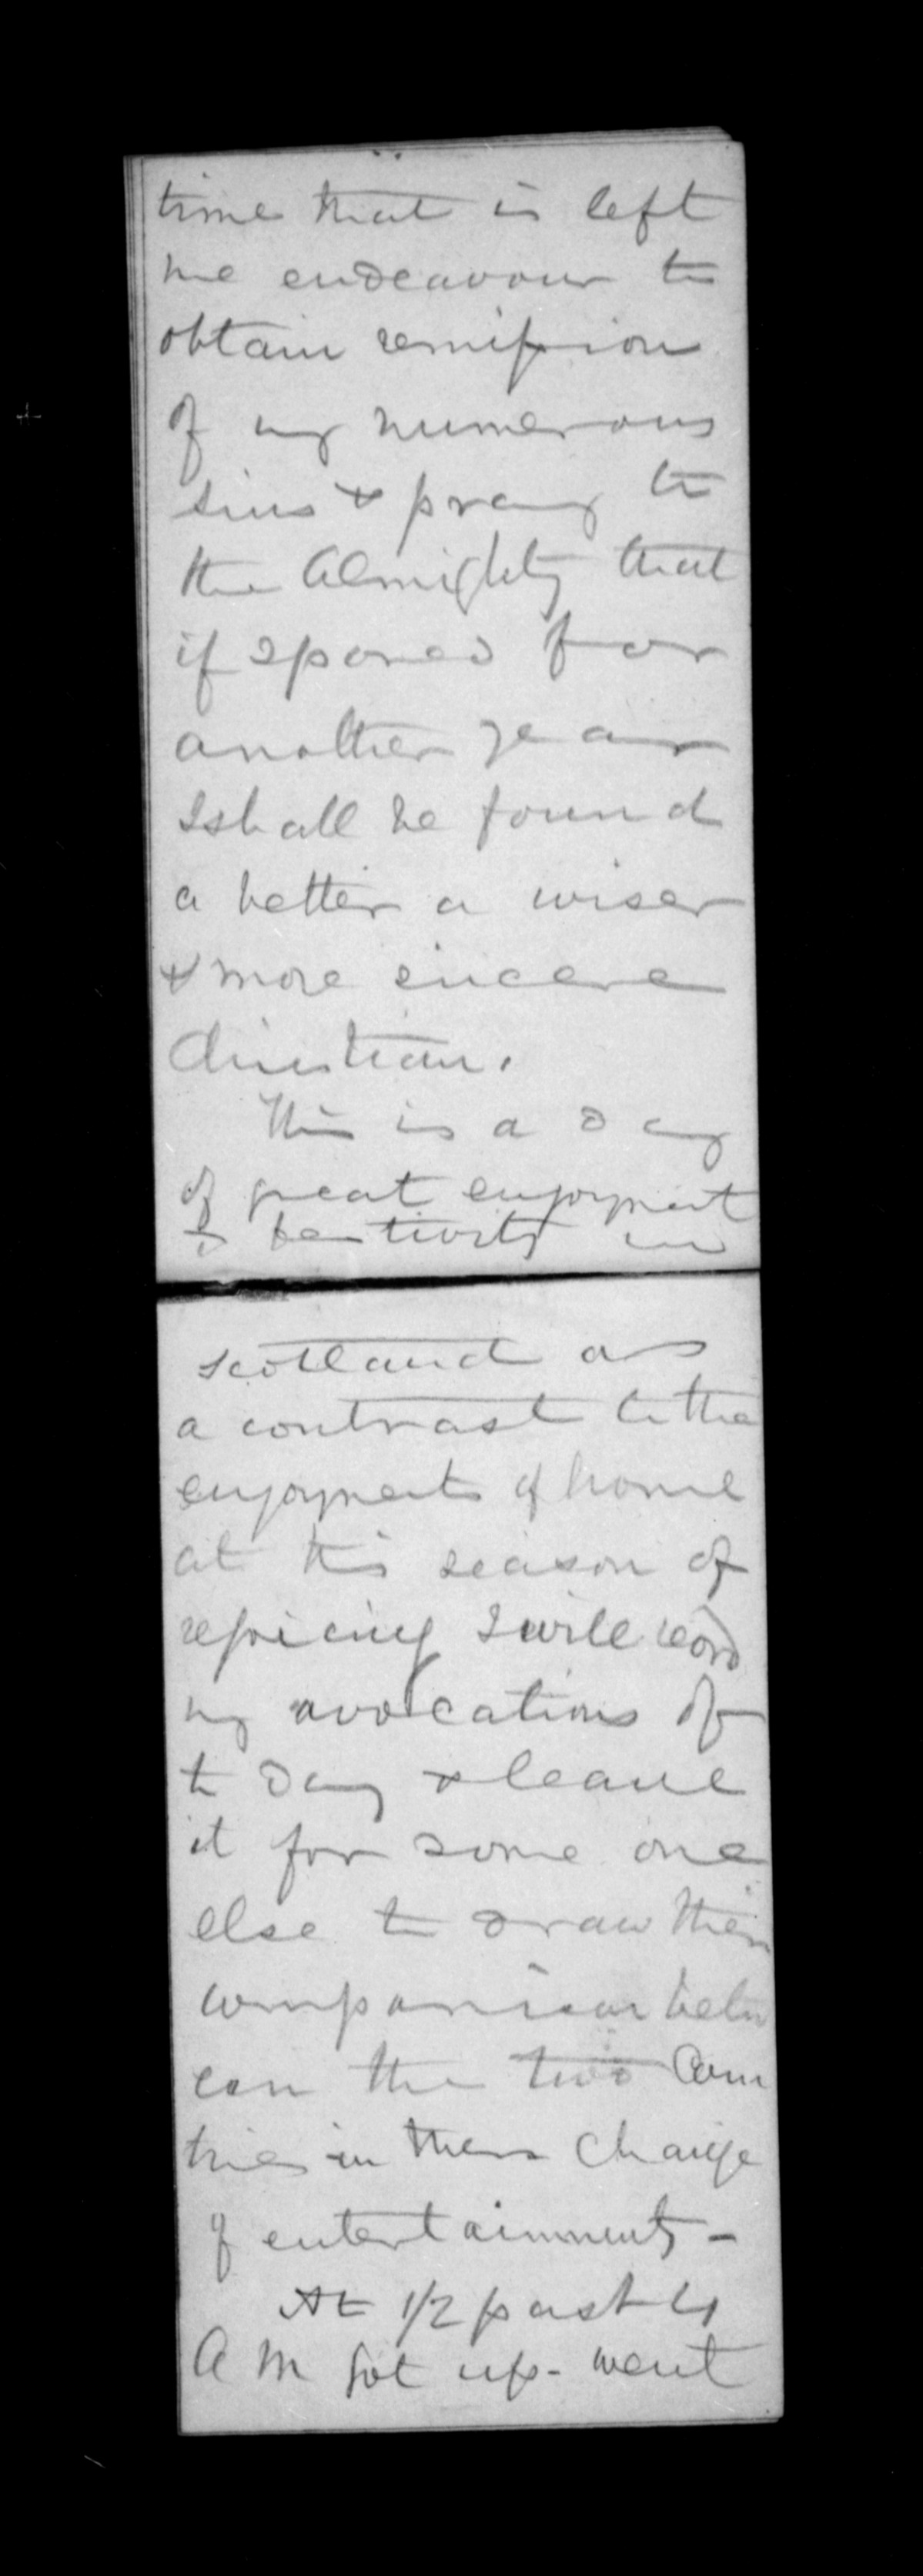 time that is left
me endeavour to
obtain remission
of my numerous
sins & pray to
the Almighty that
if spared for
another year
I shall be found
a better a wiser
& more sincere
Christian.
This is a day
of great enjoyment
& festivity in
Scotland as
a contrast to the
enjoyments of home
at this season of
rejoicing I will record
my avocations of
to day & leave
it for some one
else to draw their
comparison betw
een the two Coun
tries in their Change
of entertainments -
At 1/2 past 4
A M got up - went